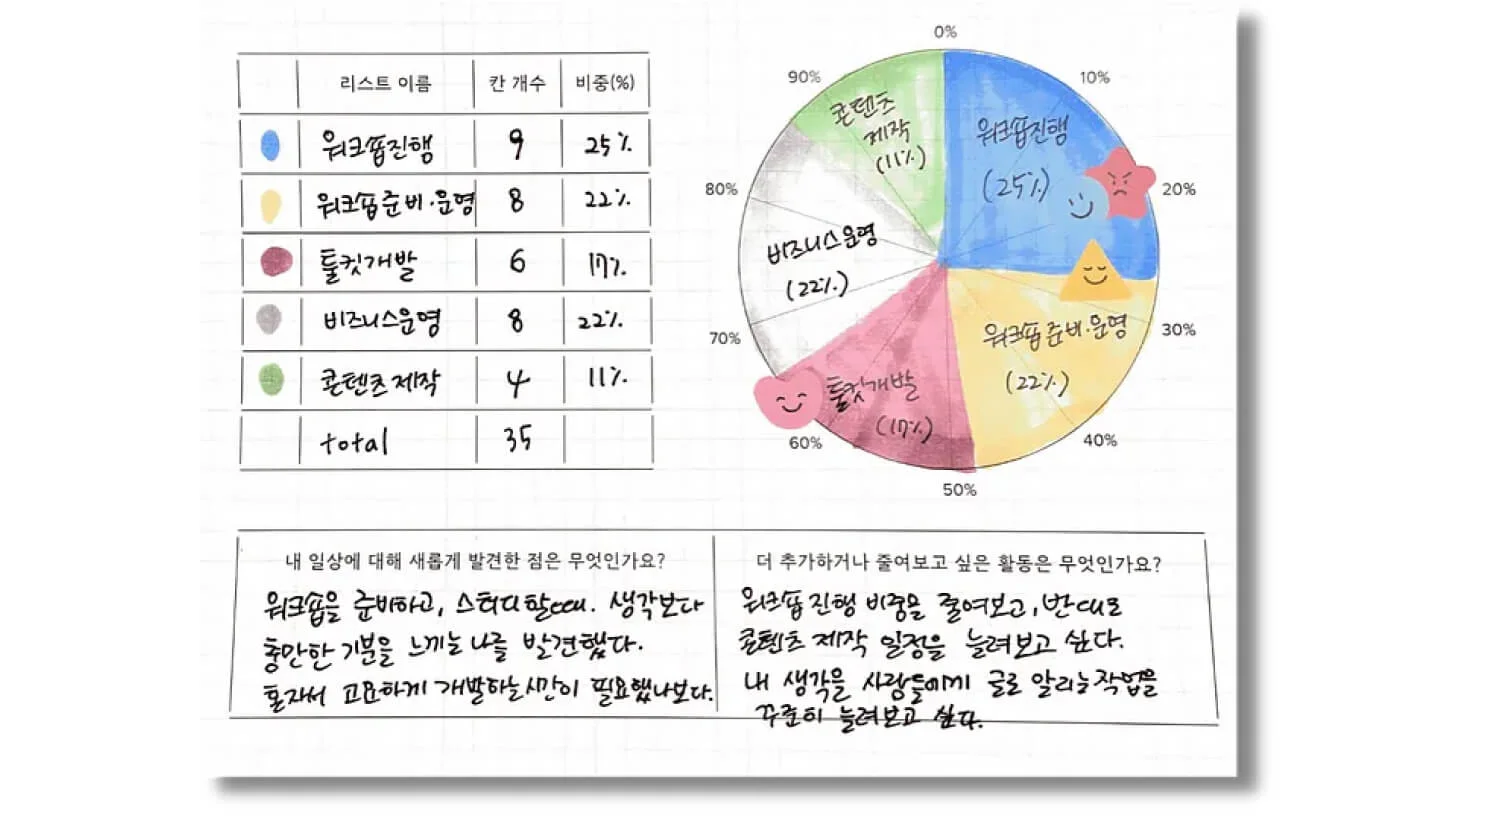 리스트 이름 칸 개수 비중(%)
워크숍진행 9 25%
워크숍준비·운영 8 22%
툴킷개발 6 17%
비즈니스운영 8 22%
콘텐츠 제작 4 11%
total 35
0%
10%
20%
30%
40%
50%
60%
70%
80%
90%
워크숍진행
(25%)
워크숍준비·운영
(22%)
툴킷개발
(17%)
비즈니스운영
(22%)
콘텐츠
제작
(11%)
내 일상에 대해 새롭게 발견한 점은 무엇인가요?
워크숍을 준비하고, 스터디할때. 생각보다
충만한 기분을 느끼는 나를 발견했다.
혼자서 고요하게 개발하는시간이 필요했나보다.
더 추가하거나 줄여보고 싶은 활동은 무엇인가요?
워크숍 진행 비중을 줄여보고, 반대로
콘텐츠 제작 일정을 늘려보고 싶다.
내 생각을 사람들에게 글로 알리는작업을
꾸준히 늘려보고 싶다.